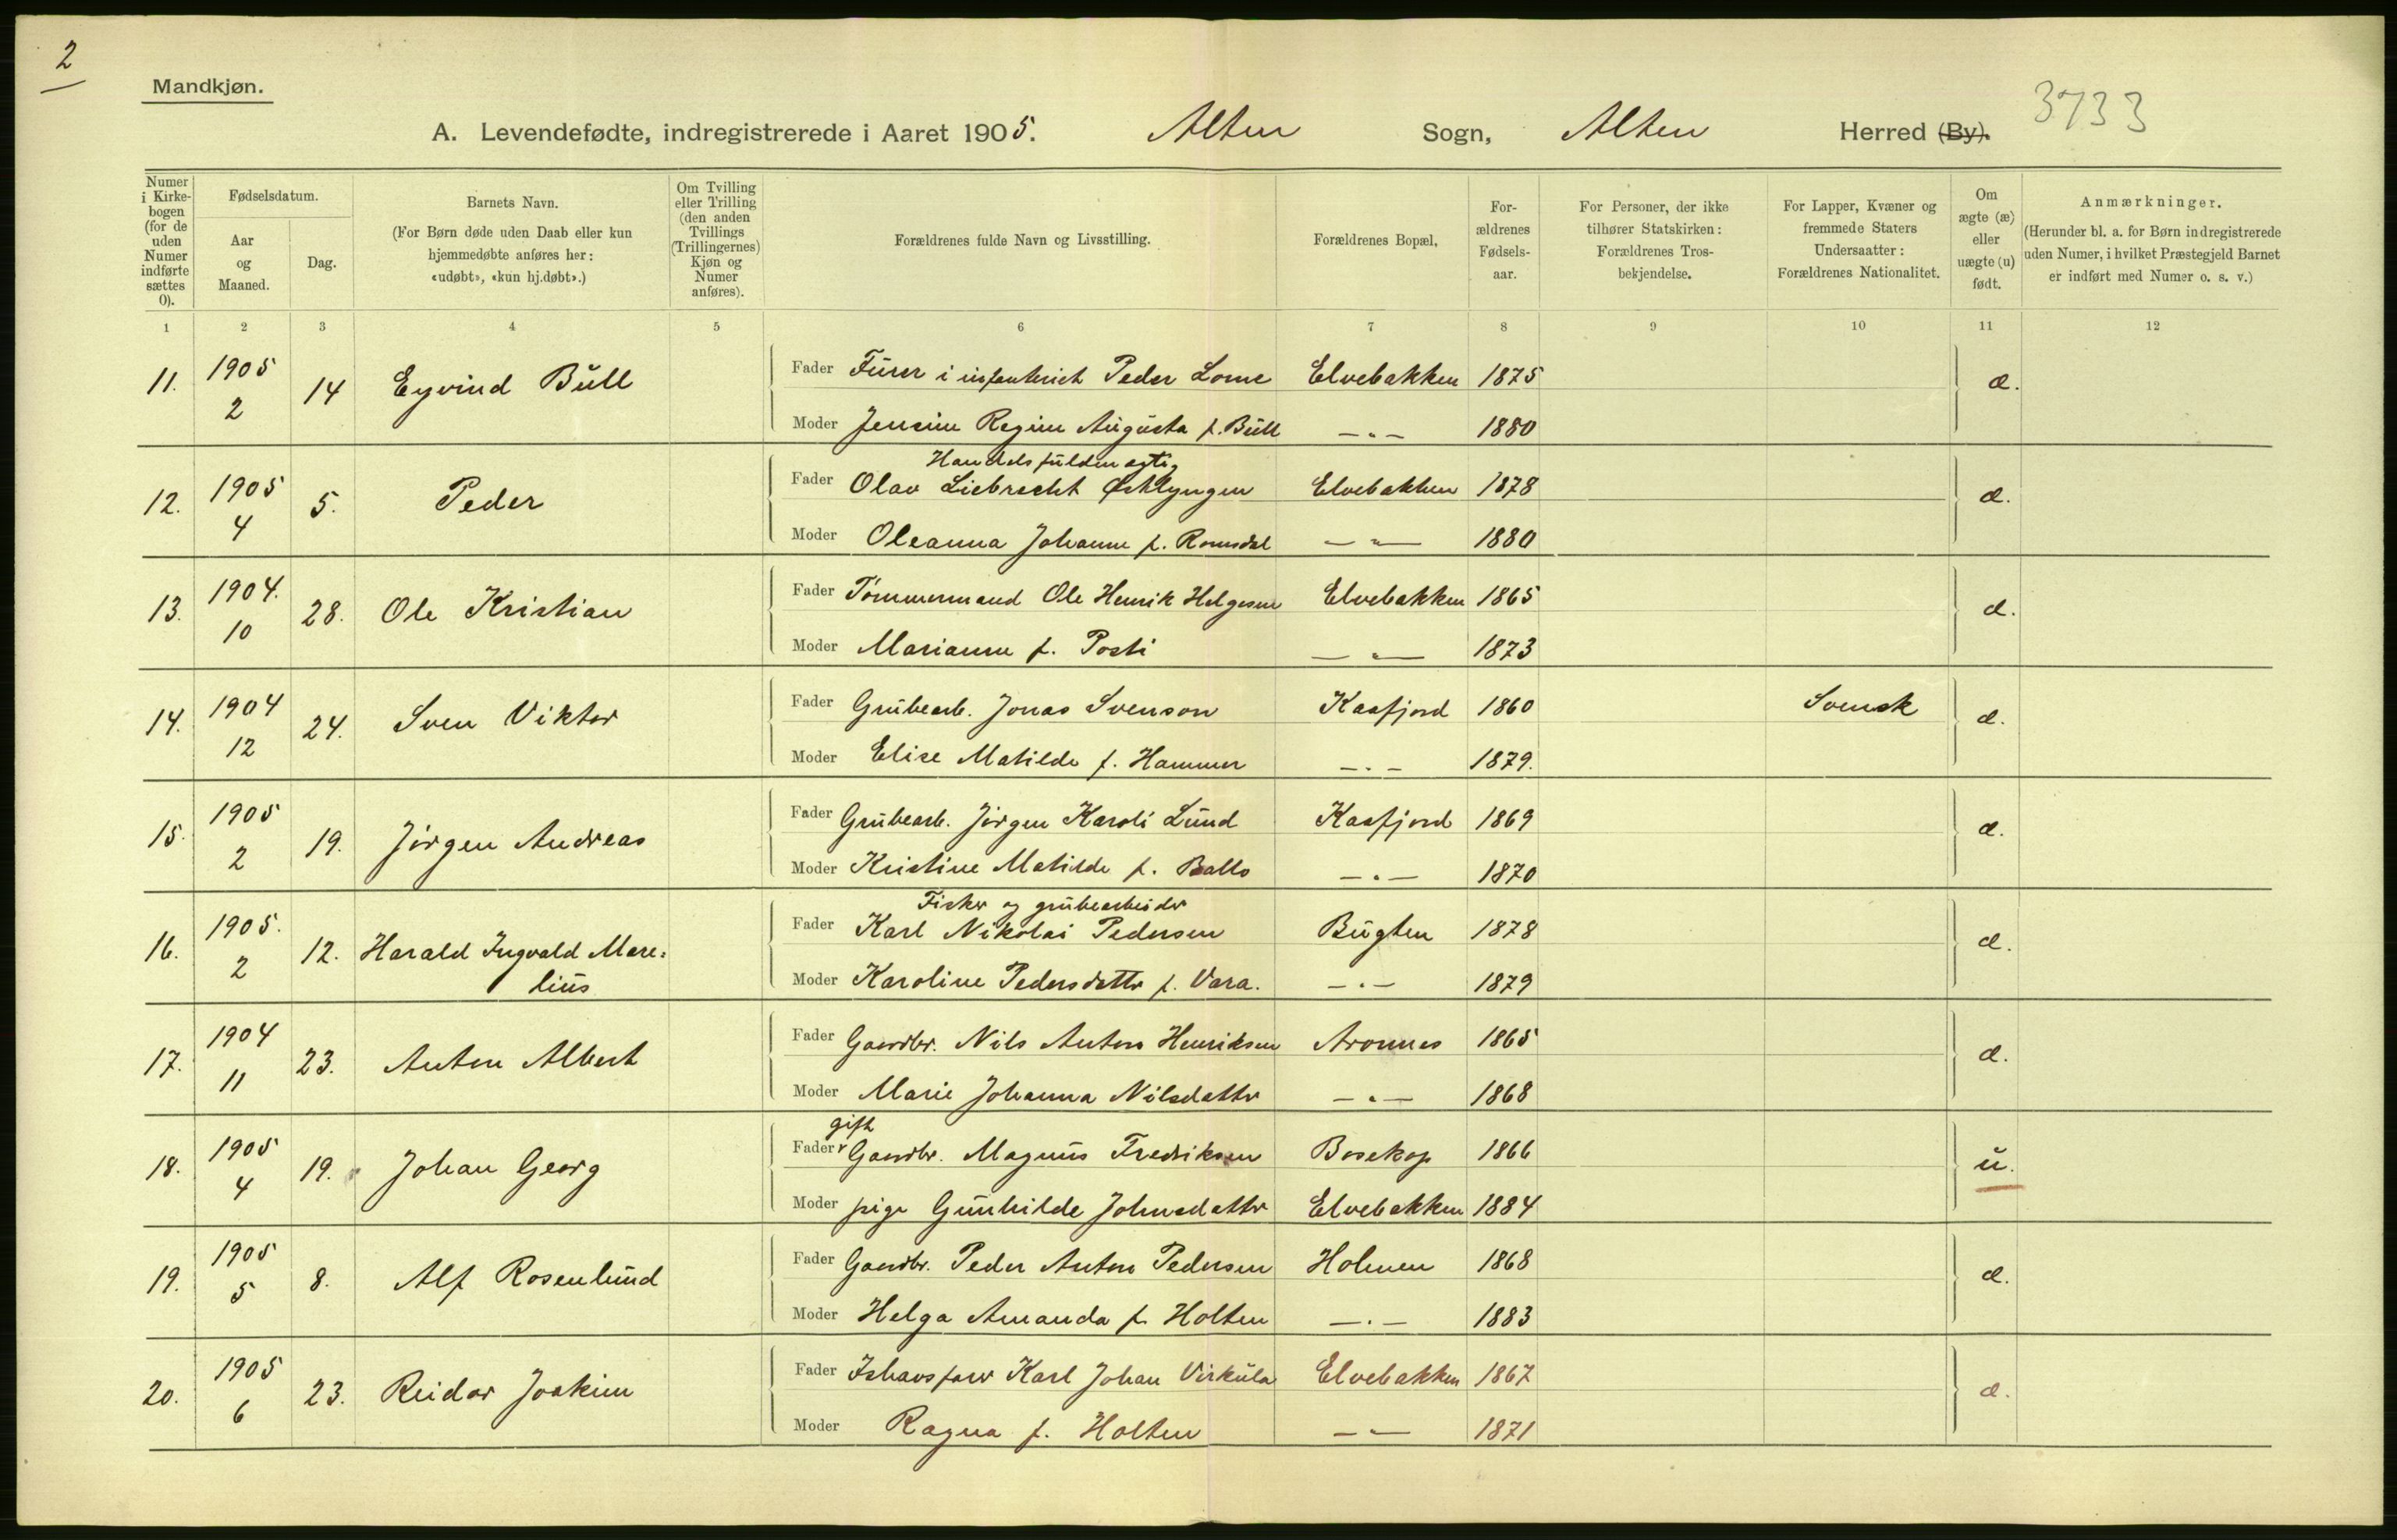 2
Mandkjøn.
3733
A. Levendefødte, indregistrerede i Aaret 1905. Alten Sogn, Alten Herred (By).
Numer i Kirke-bogen (for de uden Numer indførte sættes 0).
Fødselsdatum.
Aar og Maaned.
Dag.
Barnets Navn.
(For Børn døde uden Daab eller kun hjemmedøbte anføres her: «udøbt», «kun hj.døbt».)
Om Tvilling eller Trilling (den anden Tvillings (Trillingernes) Kjøn og Numer anføres).
Forældrenes fulde Navn og Livsstilling.
Forældrenes Bopæl,
For-ældrenes Fødsels-aar.
For Personer, der ikke tilhører Statskirken: Forældrenes Tros-bekjendelse.
For Lapper, Kvæner og fremmede Staters Undersaatter: Forældrenes Nationalitet.
Om ægte (æ) eller uægte (u) født.
Anmærkninger.
(Herunder bl. a. for Børn indregistrerede uden Numer, i hvilket Præstegjeld Barnet er indført med Numer o. s. v.)
1 2 3 4 5 6 7 8 9 10 11 12
11. 1905 2 14 Eyvind Bull
Fader Furer i infanteriet Peder Lorne Elvebakken 1875 æ.
Moder Jensine Regine Augusta f. Bull —"— 1880
12. 1905 4 5. Peder
Handelsfuldmægtig
Fader Olav Liebrecht Østlyngen Elvebakken 1878 æ.
Moder Oleanna Johanne f. Romsdal —"— 1880
13. 1904. 10 28. Ole Kristian
Fader Tømmermand Ole Henrik Helgesen Elvebakken 1865 æ.
Moder Marianne f. Posti —"— 1873
14. 1904 12 24. Sven Viktor
Fader Grubearb. Jonas Svenson Kaafjord 1860 Svensk æ.
Moder Elise Matilde f. Hammer —"— 1879.
15. 1905 2 19. Jørgen Andreas
Fader Grubearb. Jørgen Karoli Lund Kaafjord 1869 æ.
Moder Kristine Matilde f. Ballo —"— 1870
16. 1905. 2 12. Harald Ingvald Mare=
lius
Fisker og grubearbeider
Fader Karl Nikolai Pedersen Bugten 1878 æ.
Moder Karoline Pedersdatter f. Vara. —"— 1879
17. 1904 11 23. Anton Albert
Fader Gaardbr. Nils Anton Henriksen Aronnes 1865 æ.
Moder Marie Johanna Nilsdatter —"— 1868
18. 1905 4 19. Johan Georg
gift
Fader Gaardbr. Magnus Fredriksen Bosekop 1866 u.
Moder pige Gunhilde Johnsdatter Elvebakken 1884
19. 1905 5 8. Alf Rosenlund
Fader Gaardbr. Peder Anton Pedersen Holmen 1868 æ.
Moder Helga Amanda f. Holten —"— 1883
20. 1905 6 23. Reidar Joakim
Fader Ishavsfarer Karl Johan Virkula Elvebakken 1867 æ.
Moder Ragna f. Holten —"— 1871